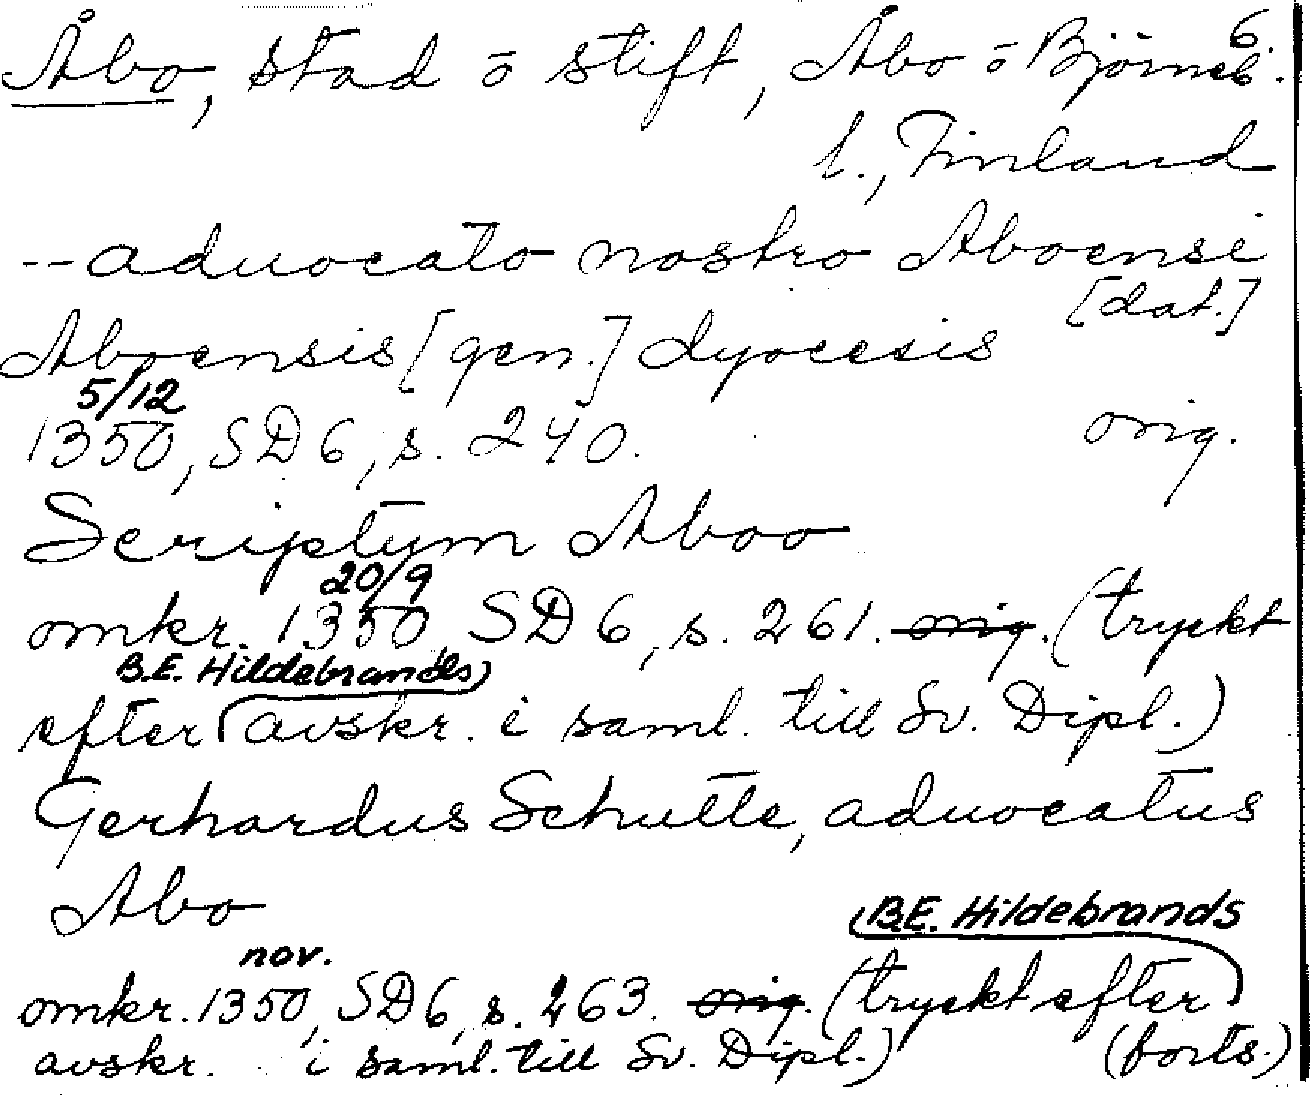 6.
Åbo, stad o stift, Åbo o Björneb.
l., Finland
-- aduocato nostro Aboensi
[dat.]
Aboensis [gen.] dyocesis
5/12
1350, SD 6, s. 240. orig.
Scriptum Aboo
20/9
omkr. 1350 SD 6, s. 261. orig. (tryckt
B.E. Hildebrands
efter avskr. i saml. till Sv. Dipl.)
Gerhardus Schutte, aduocatus
Abo
B.E. Hildebrands
nov.
omkr. 1350, SD 6, s. 263. orig. (tryckt efter
avskr. i saml. till Sv. Dipl.) (forts.)